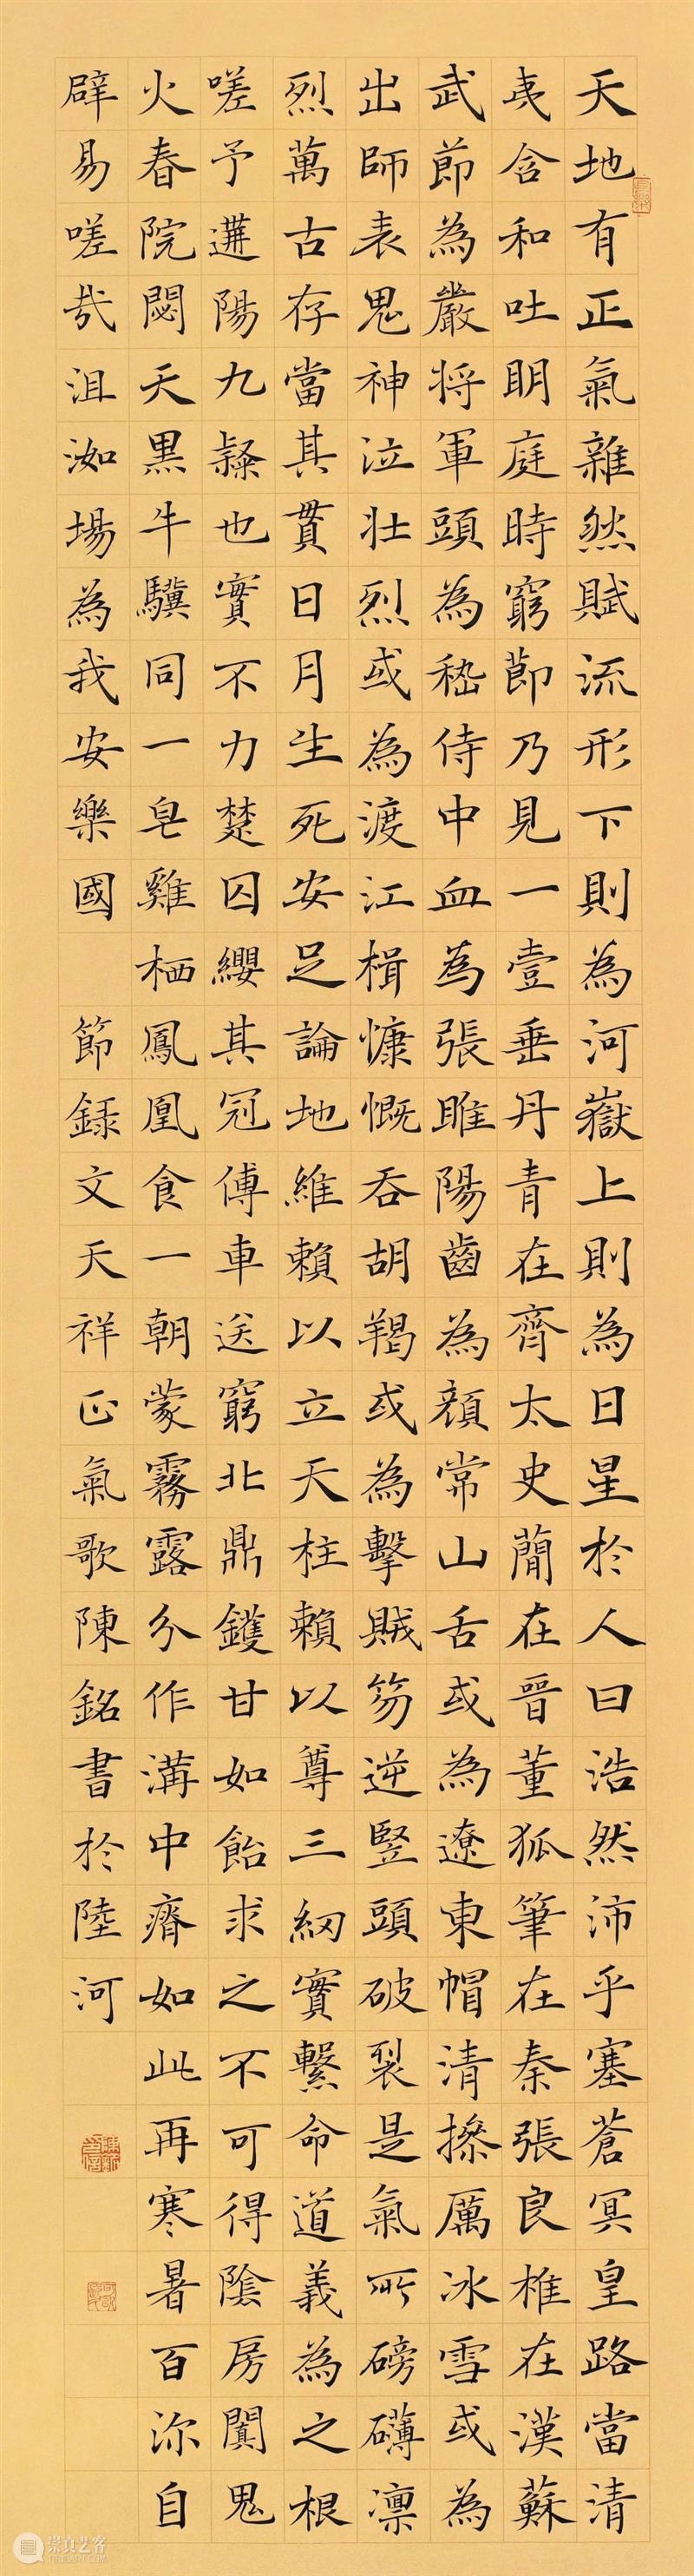 天地有正氣雜然賦流形下則為河嶽上則為日星於人曰浩然沛乎塞蒼冥皇路當清
夷含和吐明庭時窮節乃見一壹垂丹青在齊太史簡在晉董狐筆在秦張良椎在漢蘇
武節為嚴將軍頭為嵇侍中血為張睢陽齒為顏常山舌或為遼東帽清操厲冰雪或為
出師表鬼神泣壯烈或為渡江楫慷慨吞胡羯或為擊賊笏逆豎頭破裂是氣所磅礴凜
烈萬古存當其貫日月生死安足論地維賴以立天柱賴以尊三綱實繫命道義為之根
嗟予遘陽九隸也實不力楚囚纓其冠傳車送窮北鼎鑊甘如飴求之不可得陰房闃鬼
火春院閟天黑牛驥同一皂雞栖鳳凰食一朝蒙霧露分作溝中瘠如此再寒暑百沴自
辟易嗟哉沮洳場為我安樂國 節錄文天祥正氣歌陳銘書於陸河
崇真艺客